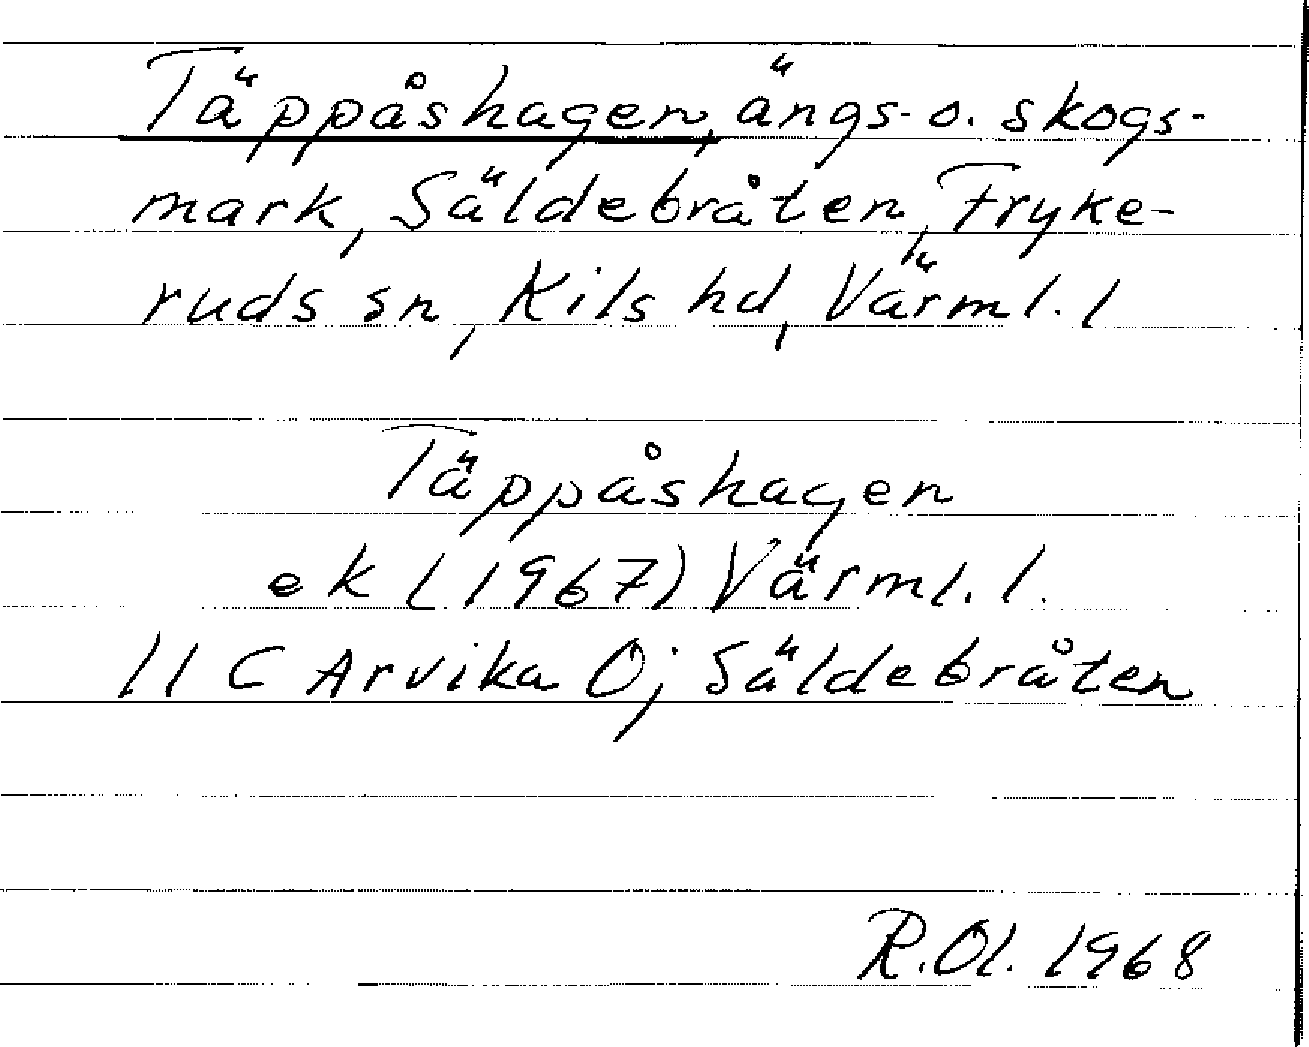 Täppåshagen, ängs- o. skogs-
mark, Säldebråten, Fryke-
ruds sn, Kils hd, Värml. l
Täppåshagen
ek (1967) Värml. l.
11 C Arvika O; Säldebråten
R. Ol. 1968